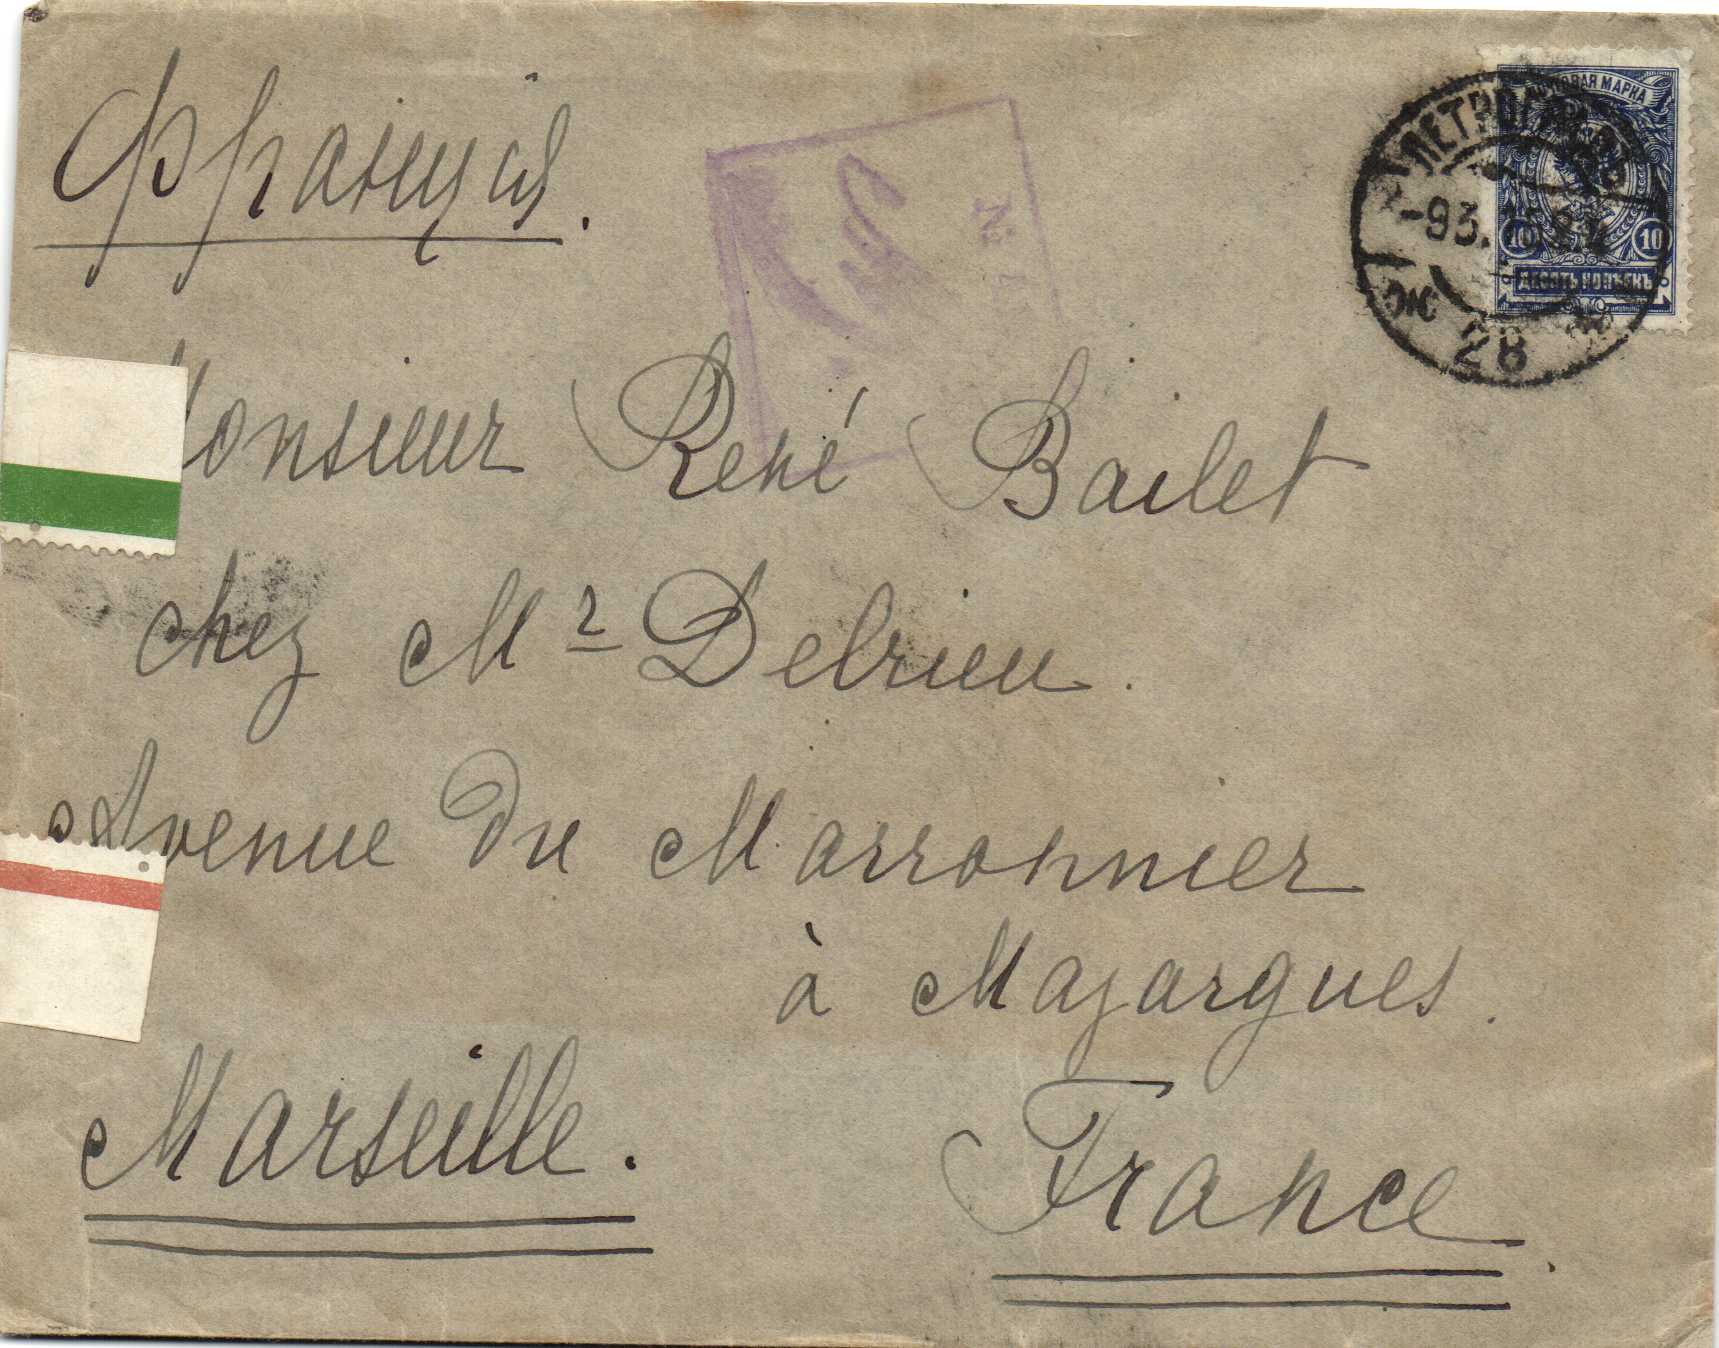 Франція.
ПОЧТОВАЯ МАРКА
ПЕТРОГРАДЪ
-9 3.
10 10
ДЕСЯТЬ КОПѢЕКЪ
28
№
Monsieur René Bailet
chez Mr Delrieu.
Avenue du Marronnier
à Mazargues.
Marseille.
France.